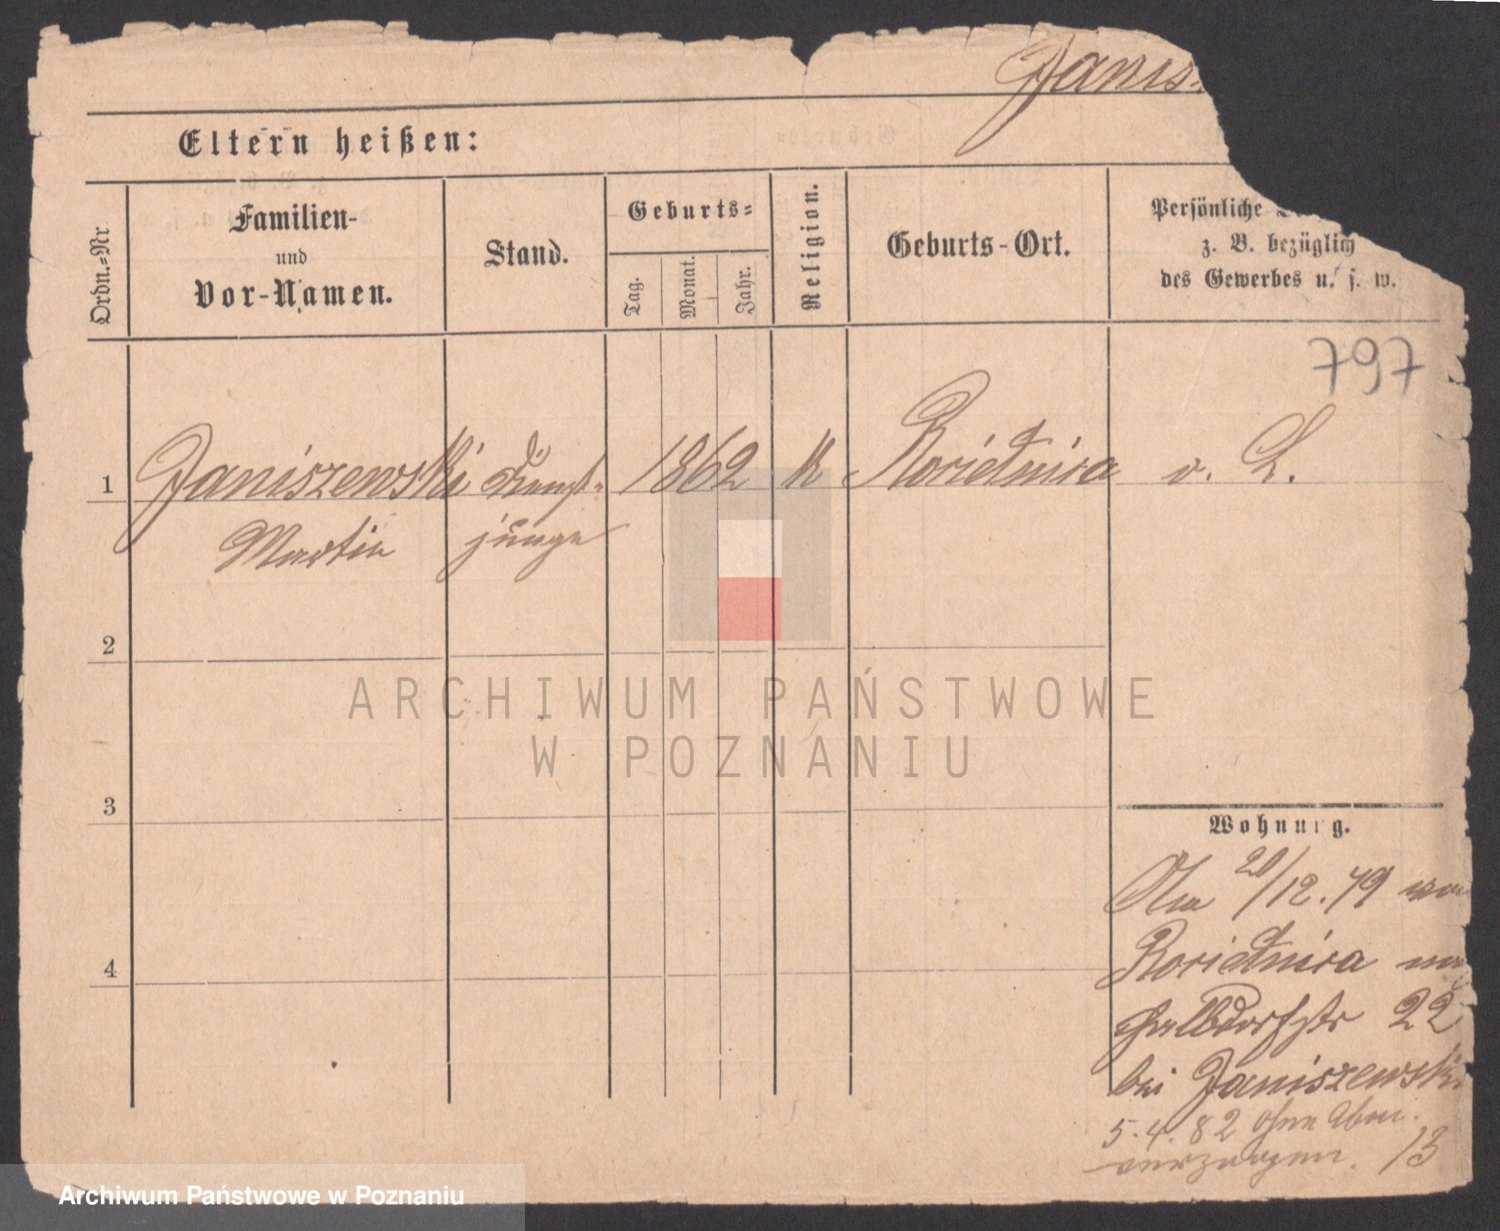 Janis
Eltern heißen:
Ordn.=Nr
Familien-
und
Vor-Namen.
Stand.
Geburts=
Tag.
Monat.
Jahr.
Religion.
Geburts-Ort.
Persönliche
z. B. bezüglich
des Gewerbes u. s. w.
797
1 Janiszewski Dienst- 1862 k v. L.
Martin junge
2
3
4
Wohnung.
20/12.79
22
bei Janiszewski
5.4.82 ohne Abm.
verzogen. 13
ARCHIWUM PAŃSTWOWE
W POZNANIU
Archiwum Państwowe w Poznaniu